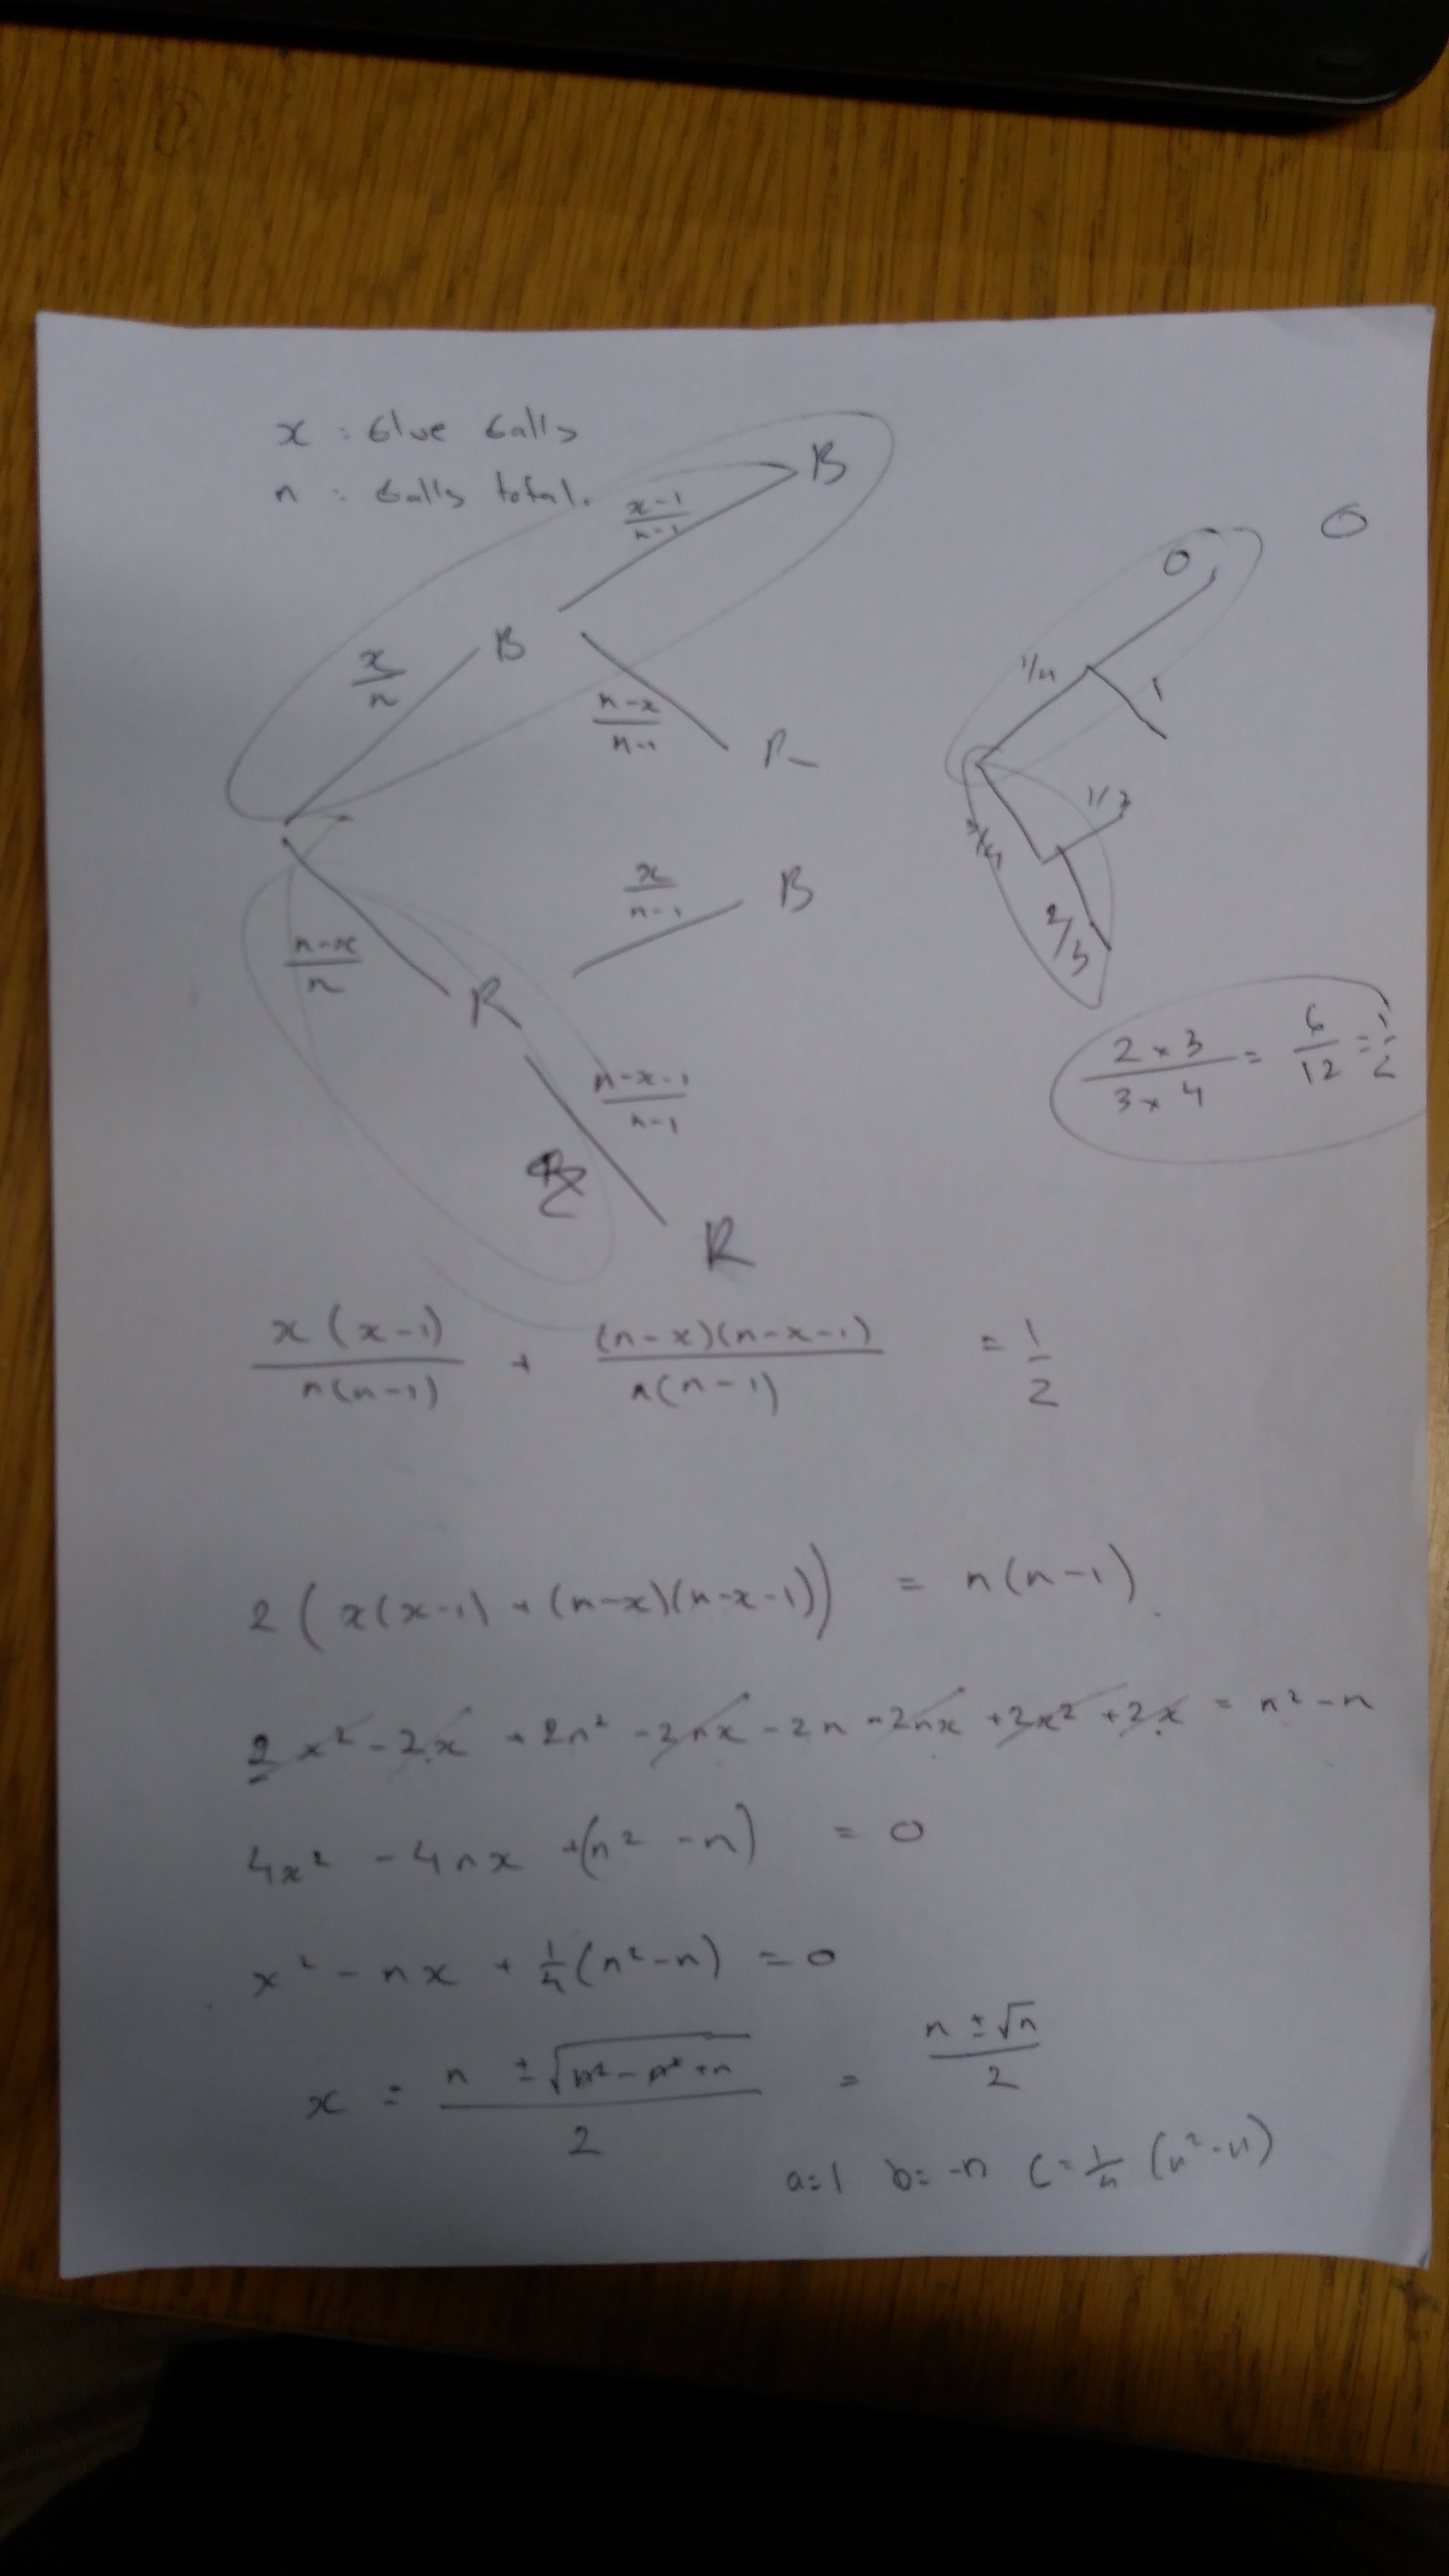 x : blue balls
n : balls total.
x/n
B
(x-1)/(n-1)
B
(n-x)/(n-1)
R
(n-x)/n
R
x/(n-1)
B
(n-x-1)/(n-1)
R
0
0
1/4
1
3/4
2/3
(2 × 3)/(3 × 4) = 6/12 = 1/2
x(x-1)/n(n-1) + (n-x)(n-x-1)/n(n-1) = 1/2
2(x(x-1) + (n-x)(n-x-1)) = n(n-1)
2x² - 2x + 2n² - 2nx - 2n - 2nx + 2x² + 2x = n² - n
4x² - 4nx + (n² - n) = 0
x² - nx + 1/4(n² - n) = 0
x = (n ± √(n² - n² + n))/2 = (n ± √n)/2
a=1 b=-n c=1/4 (n² - n)